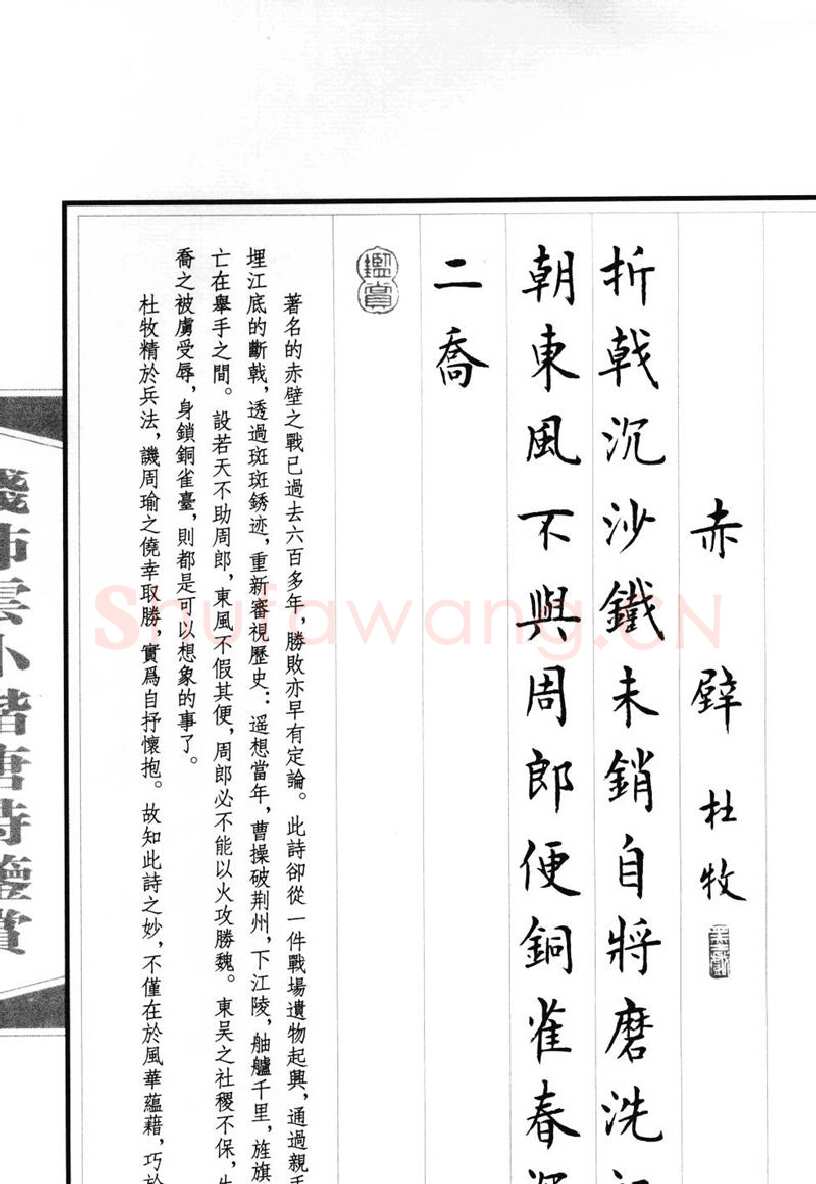 赤壁 杜牧
折戟沉沙鐵未銷自將磨洗
朝東風不與周郎便銅雀春
二喬
鑑賞
著名的赤壁之戰已過去六百多年，勝敗亦早有定論。此詩卻從一件戰場遺物起興，通過親手
埋江底的斷戟，透過斑斑銹迹，重新審視歷史：遥想當年，曹操破荆州，下江陵，舳艫千里，旌旗
亡在舉手之間。設若天不助周郎，東風不假其便，周郎必不能以火攻勝魏。東吴之社稷不保，
喬之被虜受辱，身鎖銅雀臺，則都是可以想象的事了。
杜牧精於兵法，譏周瑜之僥幸取勝，實爲自抒懷抱。故知此詩之妙，不僅在於風華蘊藉，巧於
雲小楷唐詩鑒賞
Shufawang.CN